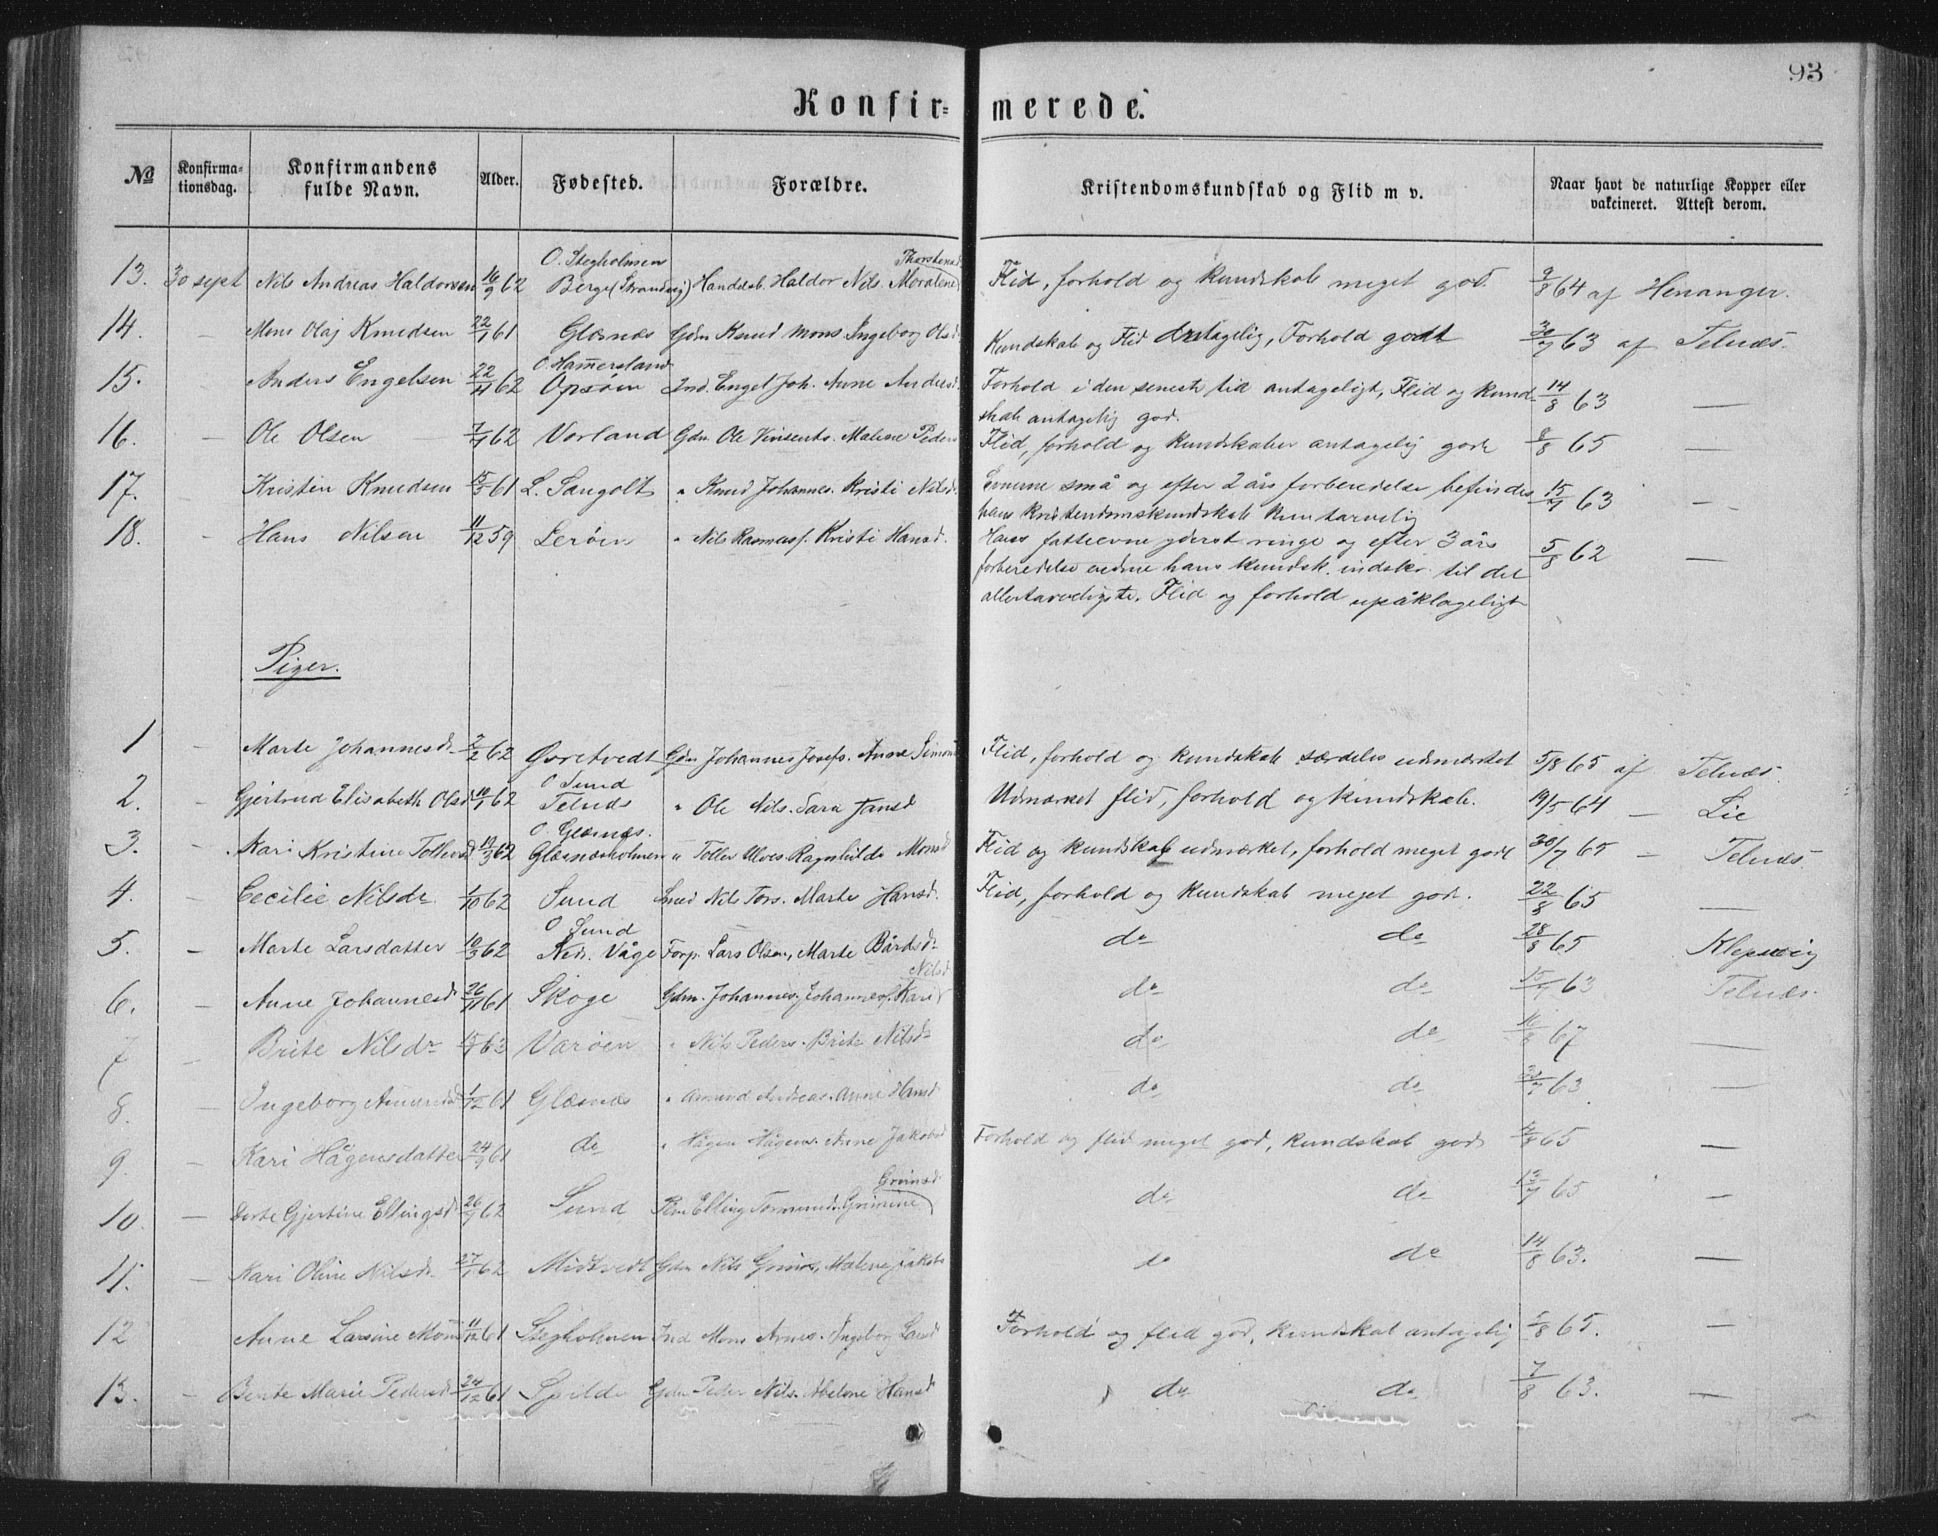 93
Konfir= merede.
No Konfirma=tionsdag. Konfirmandens fulde Navn. Alder. Fødested. Forældre. Kristendomskundskab og Flid m v. Naar havt de naturlige Kopper eller vakcineret. Attest derom.
13. 30 sept Nils Andreas Haldorsen 16/9 62 O. Stegholmen Berge (Strandvig) Handelsb. Haldor Nils. Moralene Thorstensd. Flid, forhold og kundskab meget god. 9/8 64 af Henanger.
14. – Mons Olaj Knudsen 22/1 61 Glæsnæs Gdm Knud Mons Ingeborg Olsd. Kundskab og Flid antagelig, Forhold godt 30/7 63 af Telnæs.
15. – Anders Engelsen 22/11 62 O. Hammersland Opsøen Ind. Engel Joh. Anne Andersd. Forhold i den seneste tid antageligt, Flid og kund-
skab antagelig god. 14/8 63 —
16. – Ole Olsen 7/1 62 Vorland Gdm Ole Vinsents. Malene Peders Flid, forhold og kundskaber antagelig gode 8/8 65 —
17. – Kristen Knudsen 15/3 61 L. Sangolt " Knud Johannes. Kristi Nilsd. Evnerne små og efter 2 års forberedelse befindes
hans kristendomskundskab kun tarvelig 15/7 63 –
18. – Hans Nilsen 11/12 59 Lerøen " Nils Rasmuss. Kristi Hansd. Hans fatteevne yderst ringe og efter 3 års
forberedelse endnu hans kundsk. indskr. til det
allertarveligste. Flid og forhold upåklageligt 5/8 62 —
Piger.
1 – Marte Johannesdr 2/2 62 Gorctvedt Gdm Johannes Josefs. Anne Simons Flid, forhold og kundskab særdeles udmærket 5/8 65 af Telnæs.
2. – Gjertrud Elisabeth Olsd 10/1 62 O Sund Telnæs " Ole Nils. Sara Jansd Udmærket flid, forhold og kundskab. 19/5 64 — Lie
3. – Kari Kristine Tollevsd 12/3 62 O. Glæsnæs. Glæsnæsholmen " Tollev Ulves. Ragnhilde Monsd Flid og kundskab udmærket, forhold meget godt 30/7 65 – Telnæs.
4. – Cecilie Nilsdr 1/10 62 Sund Smed Nils Tors. Marte Hansd. Flid, forhold og kundskab meget god. 22/8 65 —
5. – Marte Larsdatter 10/3 62 O Sund Ned. Våge Forp. Lars Olsen, Marte Bårdsdr do do 28/8 65 Klepsvig
6. – Anne Johannesdr 26/11 61 Skoge Gdm. Johannes Johanness. Kari Nilsd do do 15/7 63 Telnæs.
7 – Brite Nilsdr 15/1 63 Varøen " Nils Peders. Brite Nilsdr do do 10/8 67 —
8. – Ingeborg Amundsd 1/12 61 Glæsnæs " Amund Andreas. Anne Hansd do do 30/7 63 —
9. – Kari Hågensdatter 24/9 61 do " Hågen Hågens. Anne Jakobsd Forhold og flid meget god, kundskab god 4/8 65 —
10. – Dorte Gjertine Ellingsdr 26/9 62 Sund Elling Tormunds. Grimine Grimsd. do do 13/7 65 –
11. – Kari Oline Nilsdr 27/1 62 Midtvedt Gdm Nils Grims, Malene Jakobs do do 14/8 63. —
12 – Anne Larsine Monsd 11/12 61 Stegholmen Ind Mons Arnes. Ingeborg Larsd Forhold og flid god, kundskab antagelig 5/8 65. –
13. – Berte Marie Pedersd 24/12 61 Spilde Gdm Peder Nils. Abelone Hansd do do 7/8 63. —